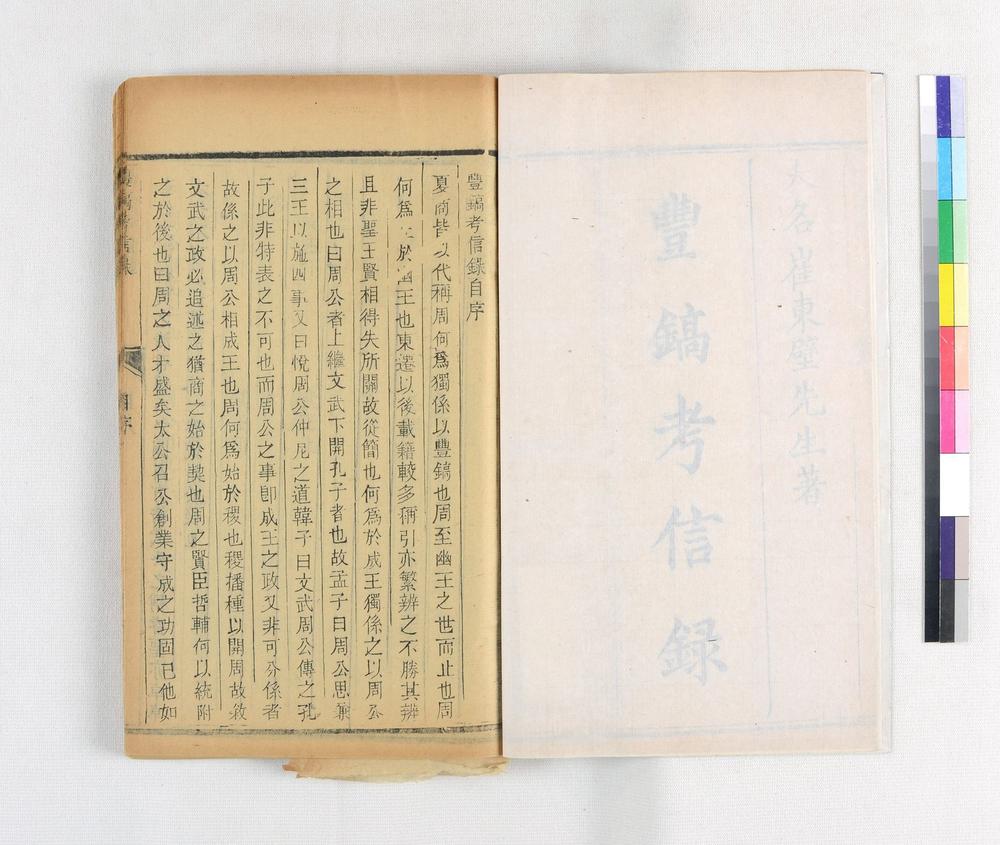 大名崔東壁先生著
豐鎬考信録
豐鎬考信錄自序
夏商皆以代稱周何爲獨係以豐鎬也周至幽王之世而止也周
何爲止於幽王也東遷以後載籍較多稱引亦繁辨之不勝其辨
且非聖王賢相得失所關故從簡也何爲於成王獨係之以周公
之相也曰周公者上繼文武下開孔子者也故孟子曰周公思兼
三王以施四事又曰悅周公仲尼之道韓子曰文武周公傳之孔
子此非特表之不可也而周公之事卽成王之政又非可分係者
故係之以周公相成王也周何爲始於稷也稷播種以開周故敘
文武之政必追述之猶商之始於契也周之賢臣哲輔何以統附
之於後也曰周之人才盛矣太公召公創業守成之功固已他如
豐鎬考信錄
自序